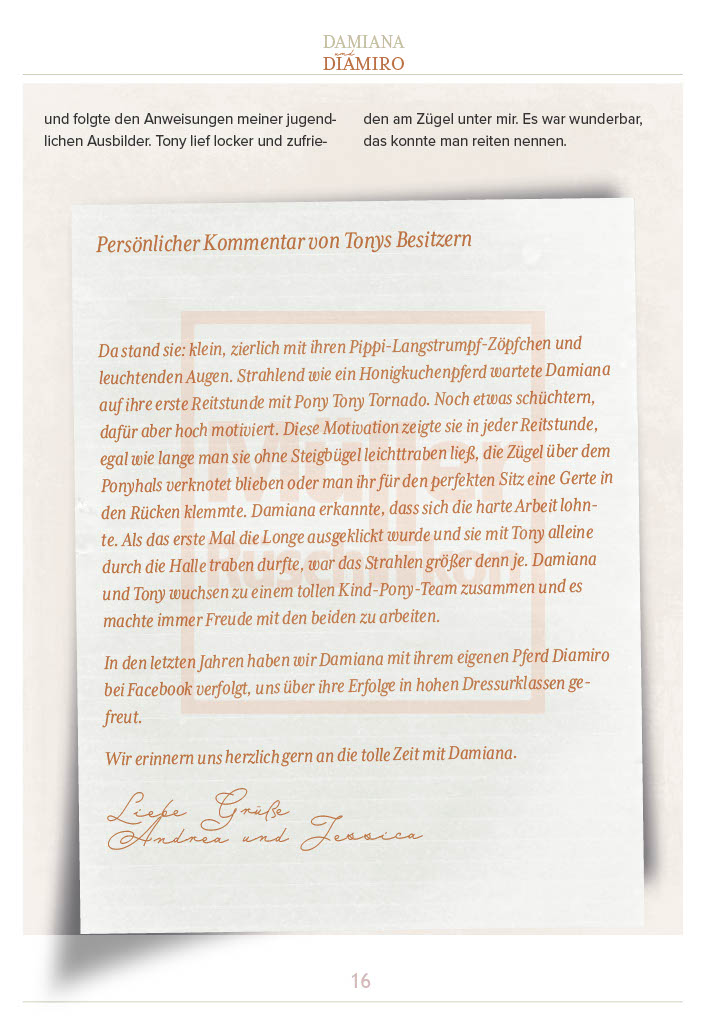 DAMIANA
und
DIAMIRO
und folgte den Anweisungen meiner jugend-
lichen Ausbilder. Tony lief locker und zufrie-
den am Zügel unter mir. Es war wunderbar,
das konnte man reiten nennen.
Persönlicher Kommentar von Tonys Besitzern
Da stand sie: klein, zierlich mit ihren Pippi-Langstrumpf-Zöpfchen und
leuchtenden Augen. Strahlend wie ein Honigkuchenpferd wartete Damiana
auf ihre erste Reitstunde mit Pony Tony Tornado. Noch etwas schüchtern,
dafür aber hoch motiviert. Diese Motivation zeigte sie in jeder Reitstunde,
egal wie lange man sie ohne Steigbügel leichttraben ließ, die Zügel über dem
Ponyhals verknotet blieben oder man ihr für den perfekten Sitz eine Gerte in
den Rücken klemmte. Damiana erkannte, dass sich die harte Arbeit lohn-
te. Als das erste Mal die Longe ausgeklickt wurde und sie mit Tony alleine
durch die Halle traben durfte, war das Strahlen größer denn je. Damiana
und Tony wuchsen zu einem tollen Kind-Pony-Team zusammen und es
machte immer Freude mit den beiden zu arbeiten.
In den letzten Jahren haben wir Damiana mit ihrem eigenen Pferd Diamiro
bei Facebook verfolgt, uns über ihre Erfolge in hohen Dressurklassen ge-
freut.
Wir erinnern uns herzlich gern an die tolle Zeit mit Damiana.
Liebe Grüße
Andrea und Jessica
16